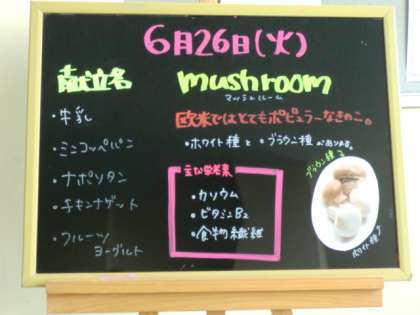 6月26日(火)
献立名
・牛乳
・ミニコッペパン
ナポリタン
・チキンナゲット
・フルーツ
ヨーグルト
mushroom
マッシュルーム
欧米ではとてもポピュラーなきのこ。
・ホワイト種と・ブラウン種があります。
主な栄養素
・カリウム
・ビタミンB2
・食物繊維
ブラウン種
ホワイト種